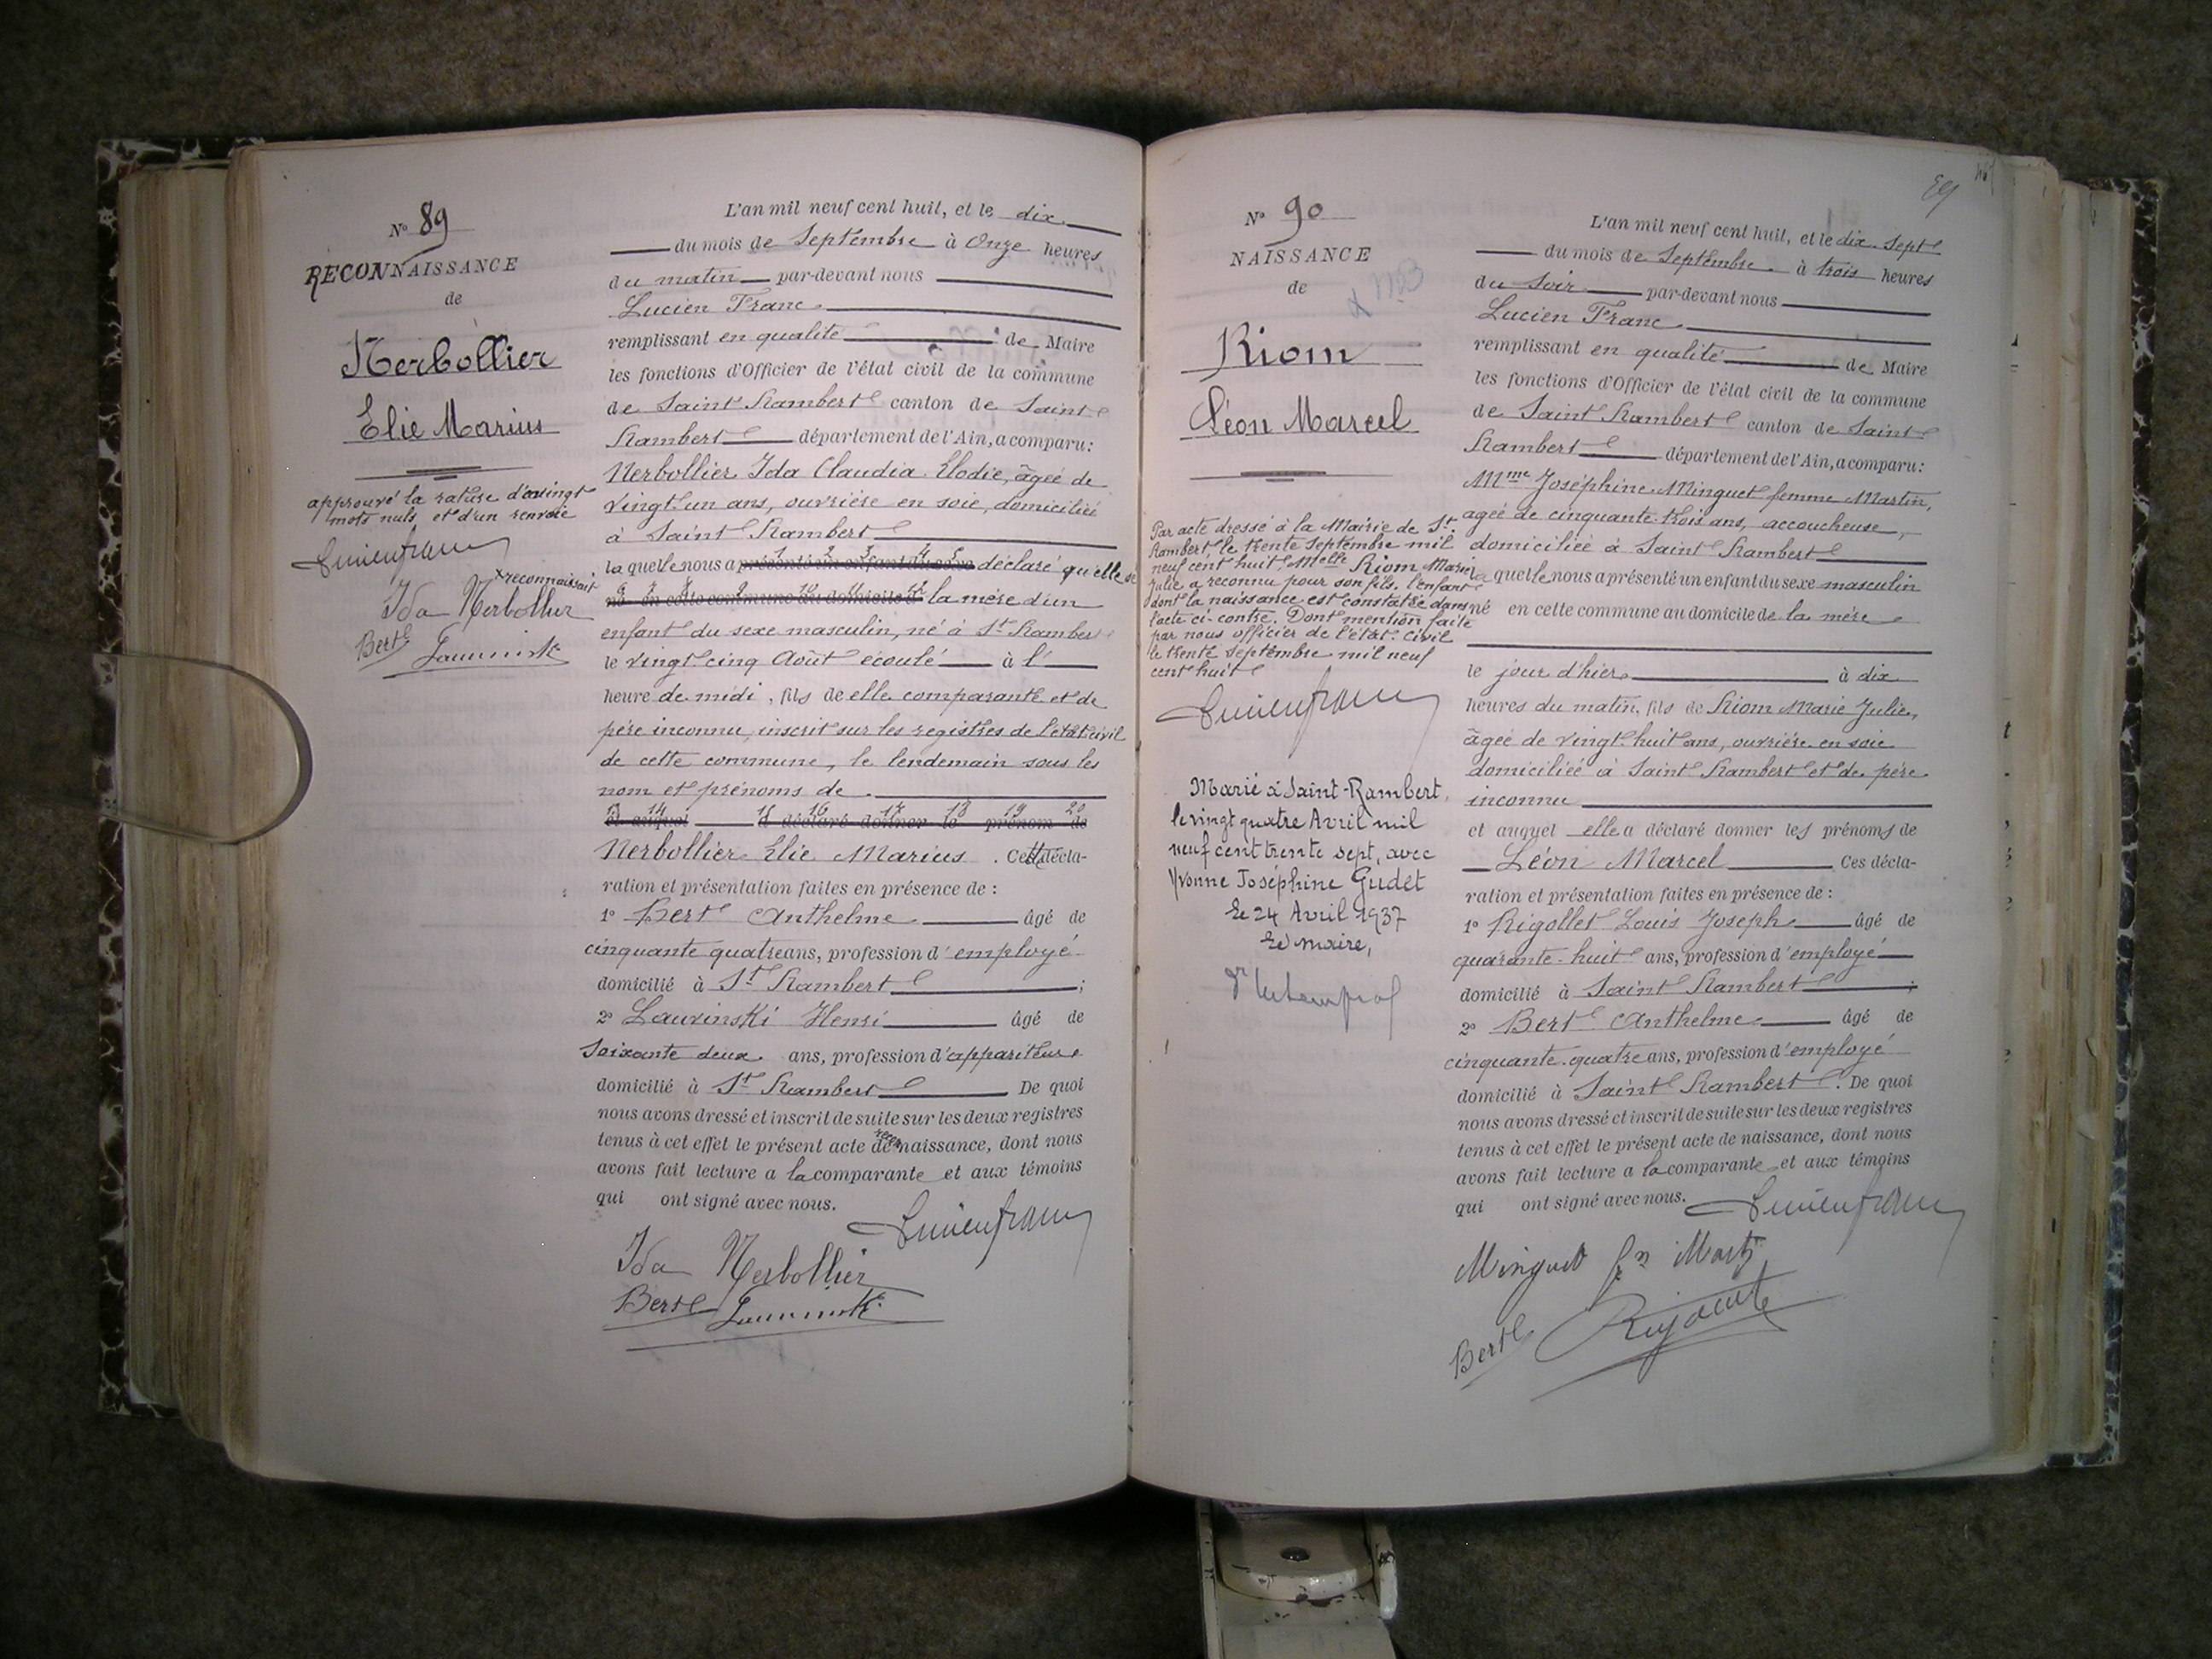 Nº 89
RECONNAISSANCE
de
Nerbollier
Elie Marius
approuvé la rature de vingt
mots nuls et d'un renvoie
Lucien franc
x reconnaissait
Ida Nerbollier
Bert
L'an mil neuf cent huit, et le dix
du mois de Septembre à Onze heures
du matin par-devant nous
Lucien Franc
remplissant en qualité de Maire
les fonctions d'Officier de l'état civil de la commune
de Saint Rambert canton de Saint
Rambert département de l'Ain, a comparu:
Nerbollier Ida Claudia Elodie, âgée de
vingt-un ans, ouvrière en soie, domiciliée
à Saint Rambert
1 2 3 4 5
la quelle nous a présenté un enfant du sexe déclaré qu'elle se
6 7 8 9 10 11 12
né en cette commune au domicile d la mère d'un
enfant du sexe masculin, né à St Rambert
le vingt cinq Août écoulé à l'
heure de midi, fils de elle comparante et de
père inconnu, inscrit sur les registres de l'état civil
de cette commune, le lendemain sous les
nom et prénoms de
13 14 15 16 17 18 19 20
et auquel il déclaré donner le prénom de
Nerbollier Elie Marius. Cette décla-
ration et présentation faites en présence de :
1º Bert Anthelme âgé de
cinquante quatre ans, profession d'employé
domicilié à St Rambert ;
2º Lavrinski Henri âgé de
soixante deux ans, profession d'appariteur
domicilié à St Rambert De quoi
nous avons dressé et inscrit de suite sur les deux registres
tenus à cet effet le présent acte de reconnaissance, dont nous
avons fait lecture a la comparante et aux témoins
qui ont signé avec nous.
Lucien franc
Ida Nerbollier
Bert
Nº 90
NAISSANCE
de
Riom
Léon Marcel
Par acte dressé à la Mairie de St
Rambert, le trente Septembre mil
neuf cent huit Melle Riom Marie
Julie a reconnu pour son fils, l'enfant
dont la naissance est constatée dans
l'acte ci-contre. Dont mention faite
par nous officier de l'état civil
le trente Septembre mil neuf
cent huit
Lucien franc
Marié à Saint-Rambert,
le vingt quatre Avril mil
neuf cent trente sept, avec
Yvonne Joséphine Gudet
Le 24 Avril 1937
Le maire,
89
L'an mil neuf cent huit, et le dix-sept
du mois de Septembre à trois heures
du soir par-devant nous
Lucien Franc
remplissant en qualité de Maire
les fonctions d'Officier de l'état civil de la commune
de Saint Rambert canton de Saint
Rambert département de l'Ain, a comparu:
Mme Joséphine Minguet femme Martin,
agée de cinquante-trois ans, accoucheuse,
domiciliée à Saint Rambert
la quelle nous a présenté un enfant du sexe masculin
né en cette commune au domicile de la mère
le jour d'hier à dix
heures du matin, fils de Riom Marie Julie,
âgée de vingt-huit ans, ouvrière en soie
domiciliée à Saint Rambert et de père
inconnu
et auquel elle a déclaré donner les prénoms de
Léon Marcel Ces décla-
ration et présentation faites en présence de :
1º Rigollet Louis Joseph âgé de
quarante-huit ans, profession d'employé
domicilié à Saint Rambert ;
2º Bert Anthelme âgé de
cinquante-quatre ans, profession d'employé
domicilié à Saint Rambert. De quoi
nous avons dressé et inscrit de suite sur les deux registres
tenus à cet effet le présent acte de naissance, dont nous
avons fait lecture a la comparante et aux témoins
qui ont signé avec nous.
Lucien franc
Minguet fe Martin
Bert